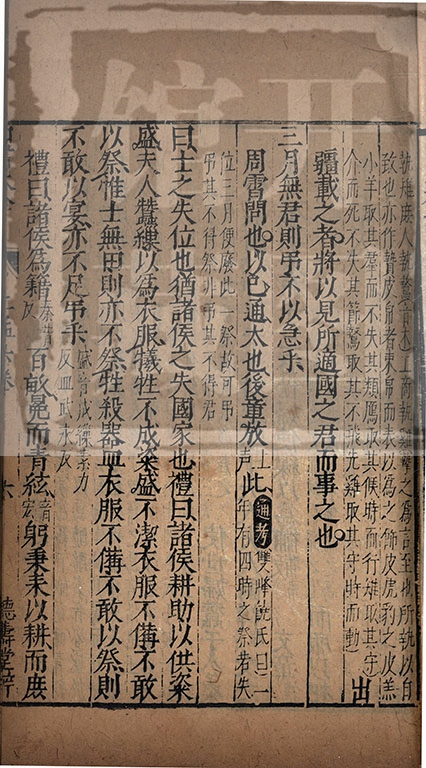 執雉庶人執鶩音木工商執雞摯之為言至也所執以自
致也亦作贄皮帛者束帛而表以為之飾皮虎豹之皮羔
小羊取其羣而不失其類鴈取其候時而行雉取其守
介而死不失其節鶩取其不飛遷雞取其守時而動 出
疆載之者將以見所適國之君而事之也
三月無君則弔不以急乎
周霄問也以已通太也後章放上聲此 通考 雙峰饒氏曰一年有四時之祭若失
位三月便廢此一祭故可弔
弔其不得祭非弔其不得君
曰士之失位也猶諸侯之失國家也禮曰諸侯耕助以供粢
盛夫人蠶繅以為衣服犧牲不成粢盛不潔衣服不備不敢
以祭惟士無田則亦不祭牲殺器皿衣服不備不敢以祭則
不敢以宴亦不足弔乎 盛音成繅素刀反皿武永反
禮曰諸侯為藉秦昔反百畝冕而青紘音宏躬秉耒以耕而庶
六
德壽堂梓